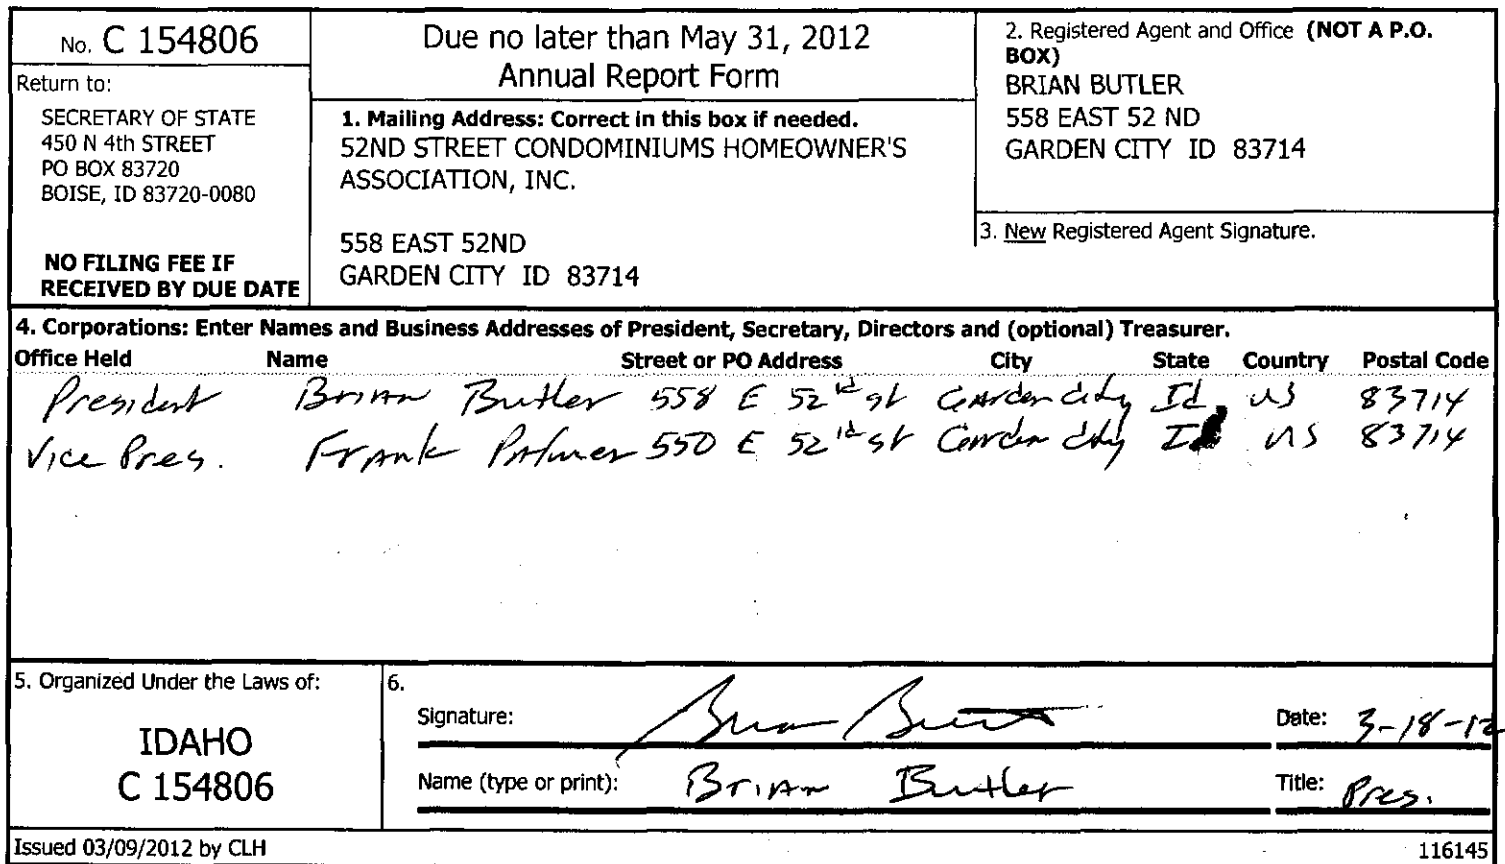 No. C 154806
Return to:
SECRETARY OF STATE
450 N 4th STREET
PO BOX 83720
BOISE, ID 83720-0080
NO FILING FEE IF
RECEIVED BY DUE DATE
Due no later than May 31, 2012
Annual Report Form
1. Mailing Address: Correct in this box if needed.
52ND STREET CONDOMINIUMS HOMEOWNER'S
ASSOCIATION, INC.
558 EAST 52ND
GARDEN CITY ID 83714
2. Registered Agent and Office (NOT A P.O.
BOX)
BRIAN BUTLER
558 EAST 52 ND
GARDEN CITY ID 83714
3. New Registered Agent Signature.
4. Corporations: Enter Names and Business Addresses of President, Secretary, Directors and (optional) Treasurer.
Office Held Name Street or PO Address City State Country Postal Code
President Brian Butler 558 E 52nd st Garden City Id US 83714
Vice Pres. Frank Palmer 550 E 52nd st Garden City Id US 83714
5. Organized Under the Laws of:
IDAHO
C 154806
6.
Signature: Brian Butler Date: 3-18-12
Name (type or print): Brian Butler Title: Pres.
Issued 03/09/2012 by CLH 116145